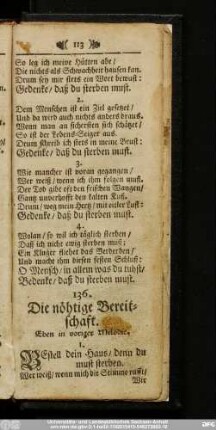 113
So leg ich meine Hütten abe /
Die nichts als Schwachheit hausen
Drum sey mir stets ein Wort bewust:
Gedenke / daß du sterben must.
2.
Dem Menschen ist ein Ziel gesetzet /
Und da wird auch nichts anders draus.
Wenn man an schersten sich schätzet /
So ist der Lebens-Seiger aus.
Drum schreib ich stets in meine Brust:
Gedenke / daß du sterben must.
3.
Wie mancher ist voran gegangen /
Wer weiß / wenn ich ihm folgen muß.
Der Tod gibt oft den frischen Wangen /
Gantz unverhofft den kalten Kuß.
Drum / weg mein Hertz / mit eitler Lust:
Gedenke / daß du sterben must.
4.
Wolan / so wil ich täglich sterben /
Daß ich nicht ewig sterben muß;
Ein Kluger siehet das Verderben /
Und macht ihm diesen festen Schluß:
O Mensch / in allem was du tuhst /
Bedenke / daß du sterben must.
136.
Die nöhtige Bereit-
schaft.
Eben in voriger Melodie.
1.
BEstell dein Haus / denn du
must sterben.
Wer weiß / wenn mich die Stimme rufft /
Wir